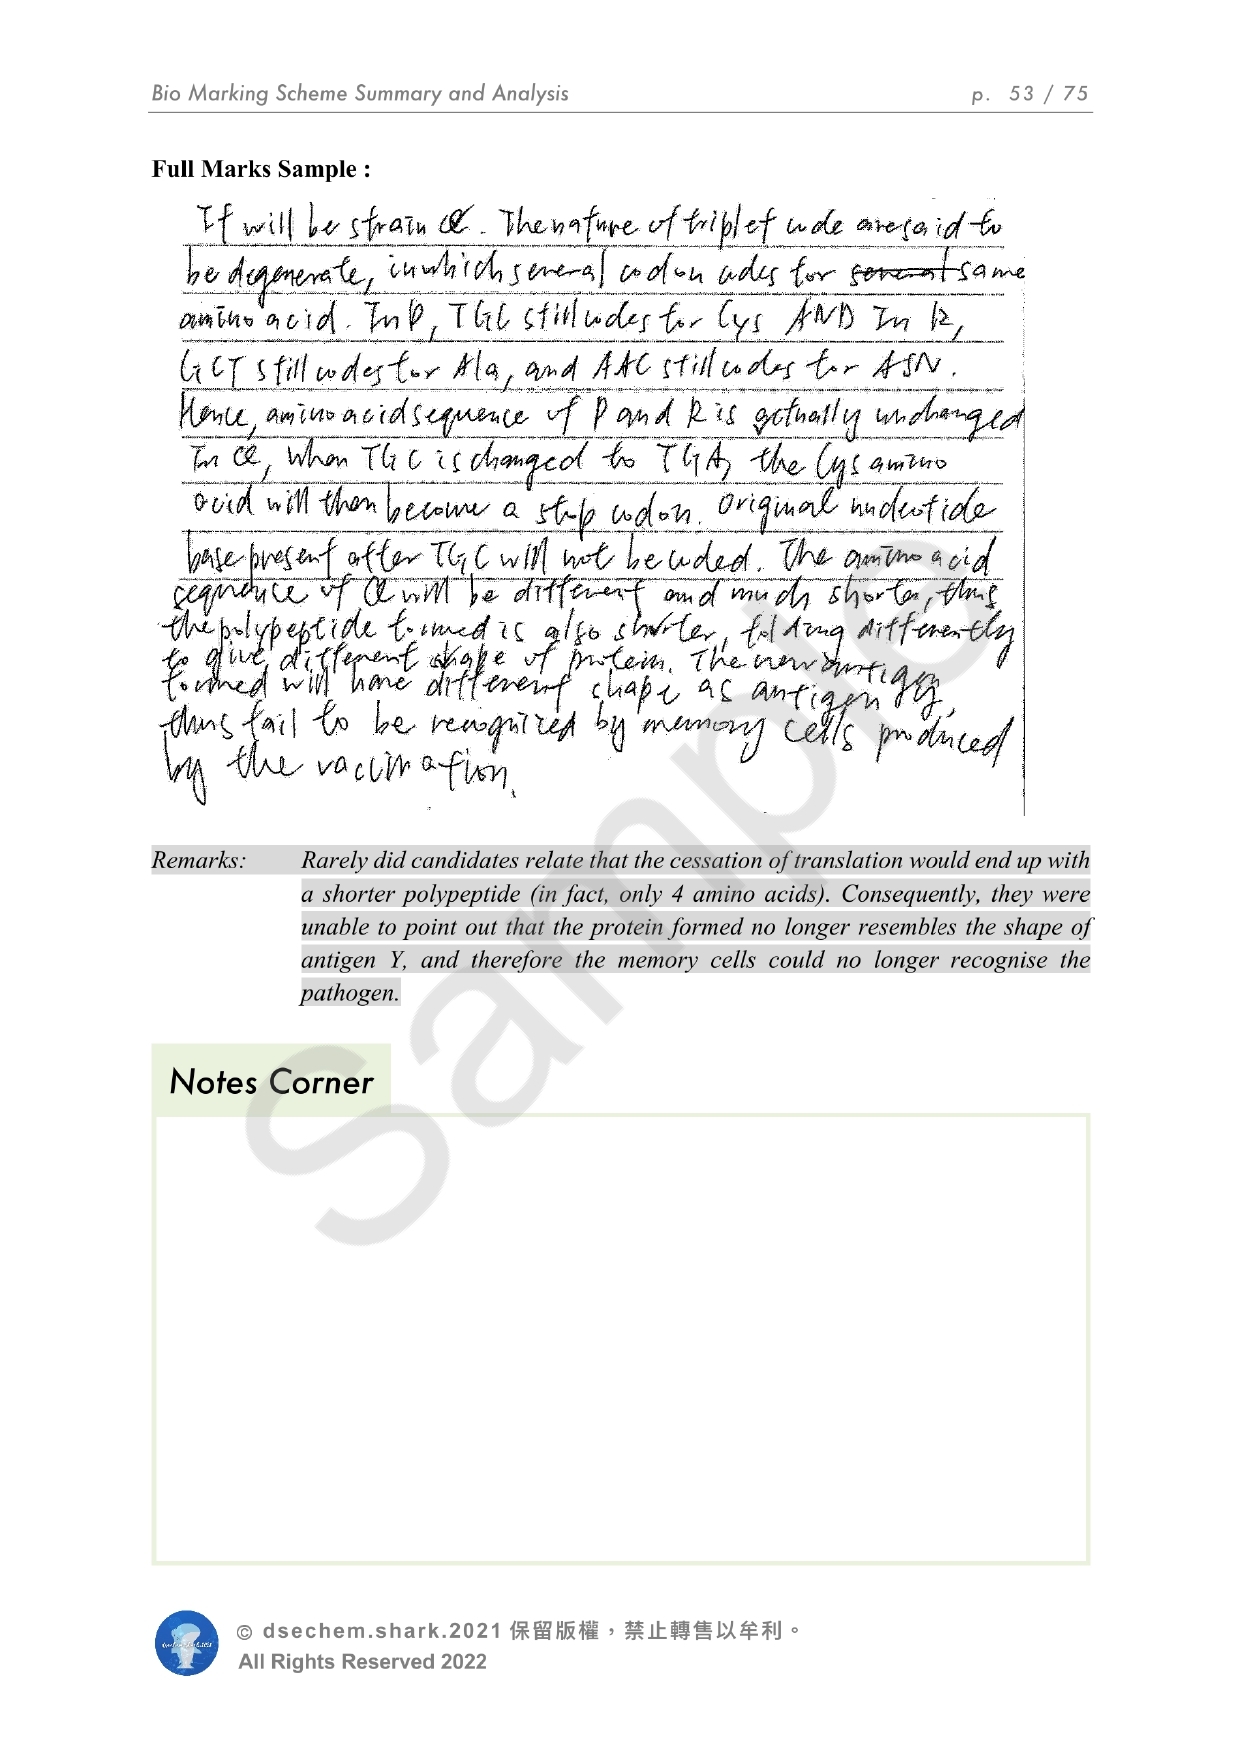 Bio Marking Scheme Summary and Analysis p. 53 / 75
Full Marks Sample :
It will be strain Q. The nature of triplet code are said to
be degenerate, in which several codon codes for several same
amino acid. In P, TGC still codes for Cys AND In R,
GCT still codes for Ala, and AAC still codes for ASN.
Hence, amino acid sequence of P and R is actually unchanged
In Q, when TGC is changed to TGA, the Cys amino
acid will then become a stop codon. Original nucleotide
base present after TGC will not be coded. The amino acid
sequence of Q will be different and much shorter, thus
the polypeptide formed is also shorter, folding differently
to give different shape of protein. The new antigen
formed will have different shape as antigen Y,
thus fail to be recognized by memory cells produced
by the vaccination.
Remarks: Rarely did candidates relate that the cessation of translation would end up with
a shorter polypeptide (in fact, only 4 amino acids). Consequently, they were
unable to point out that the protein formed no longer resembles the shape of
antigen Y, and therefore the memory cells could no longer recognise the
pathogen.
Sample
Notes Corner
© dsechem.shark.2021 保留版權，禁止轉售以牟利。
All Rights Reserved 2022